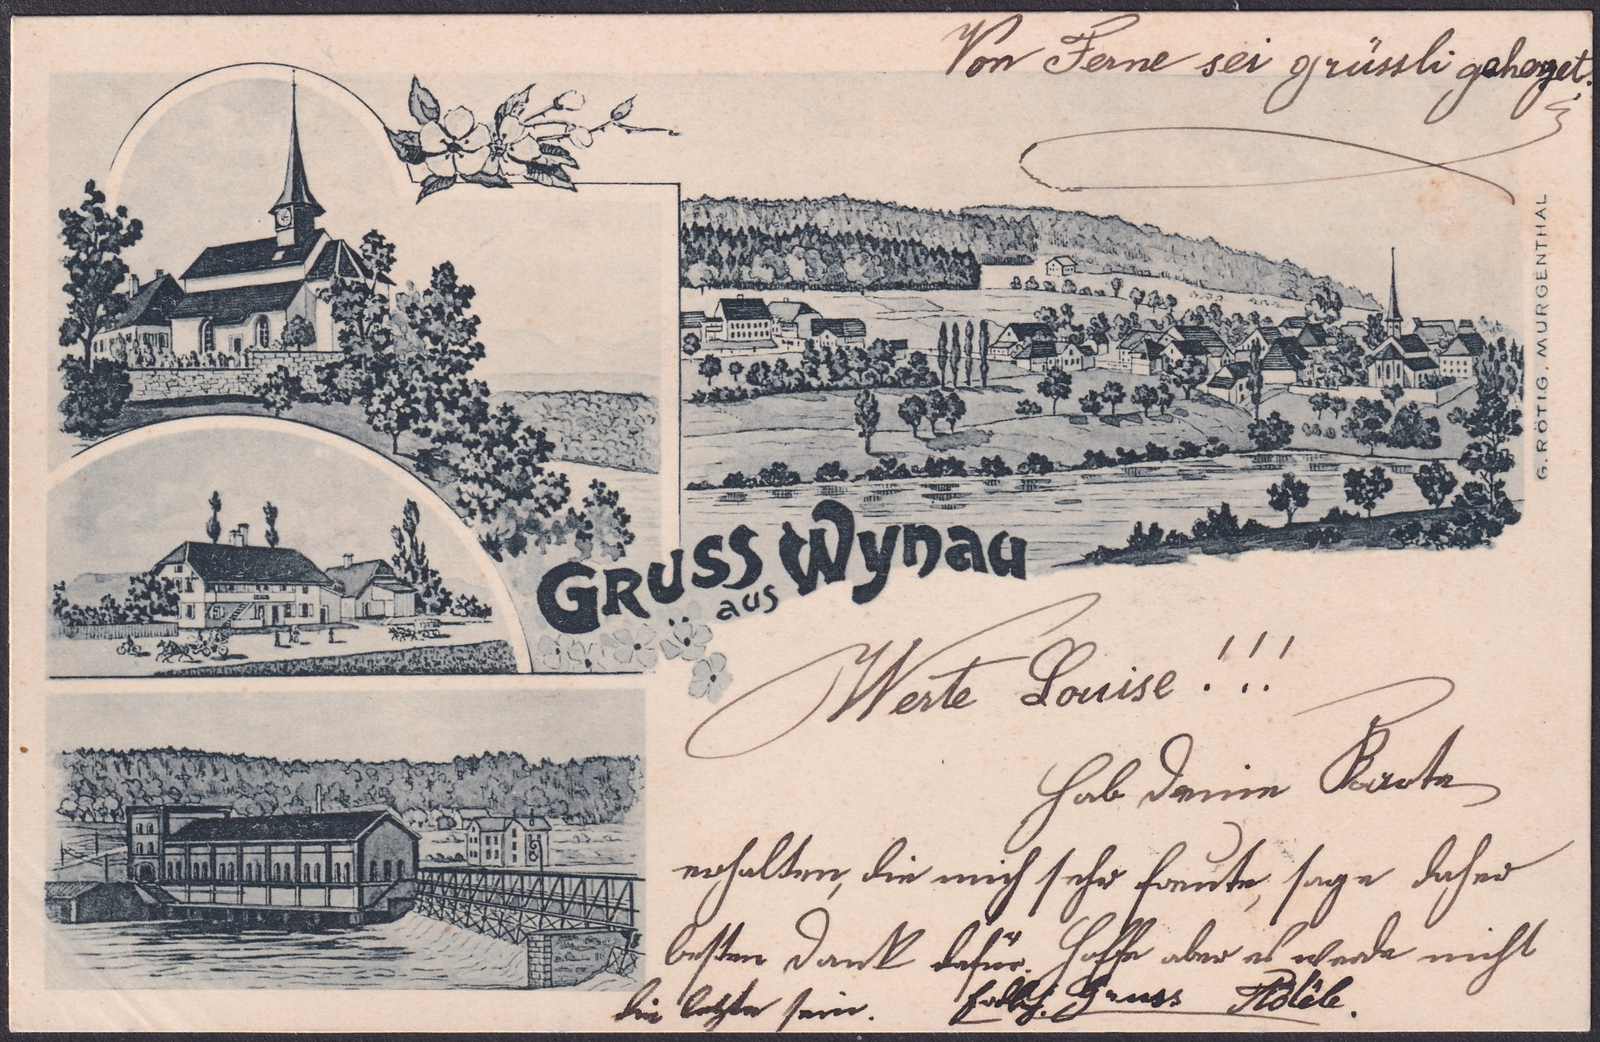 Von Ferne sei grüssli
G. RÖTIG, MURGENTHAL
GRUSS aus Wynau
Werte Louise!!!
Hab deine Karte
erhalten, die mich sehr freute, sage daher
besten Dank dafür. Hoffe aber es werde nicht
die letzte sein. Gruss Adèle.